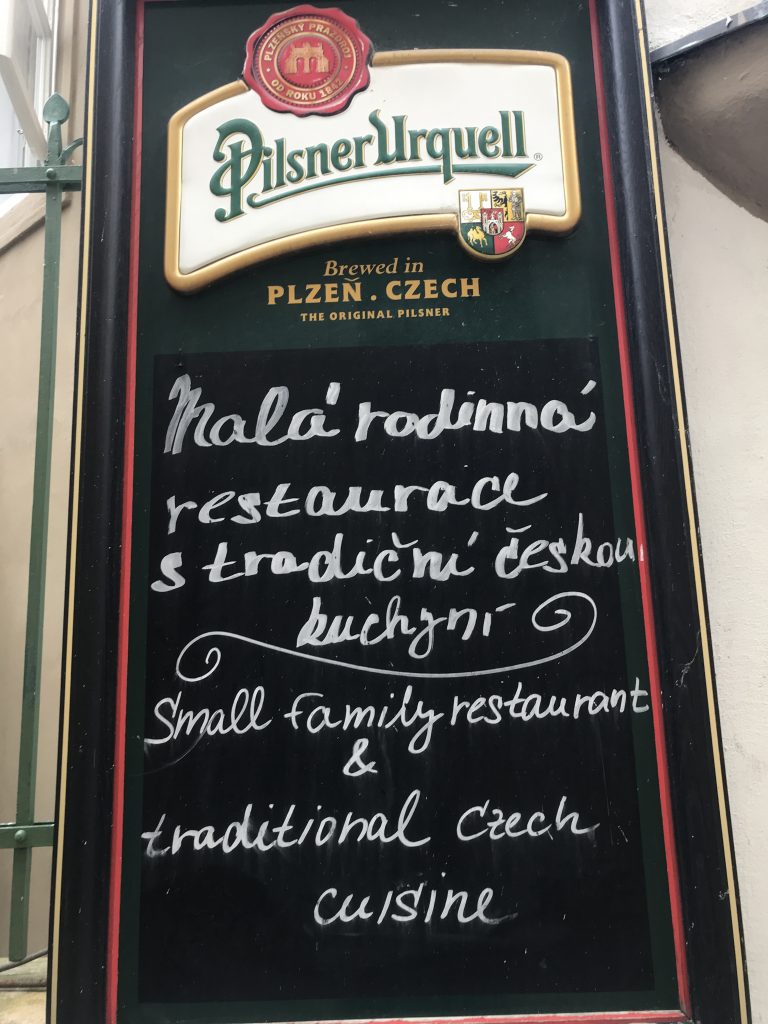 PLZEŇSKÝ PRAZDROJ
OD ROKU 1842
Pilsner Urquell ®
Brewed in
PLZEŇ . CZECH
THE ORIGINAL PILSNER
Malá rodinná
restaurace
s tradiční českou
kuchyní
Small family restaurant
&
traditional Czech
cuisine